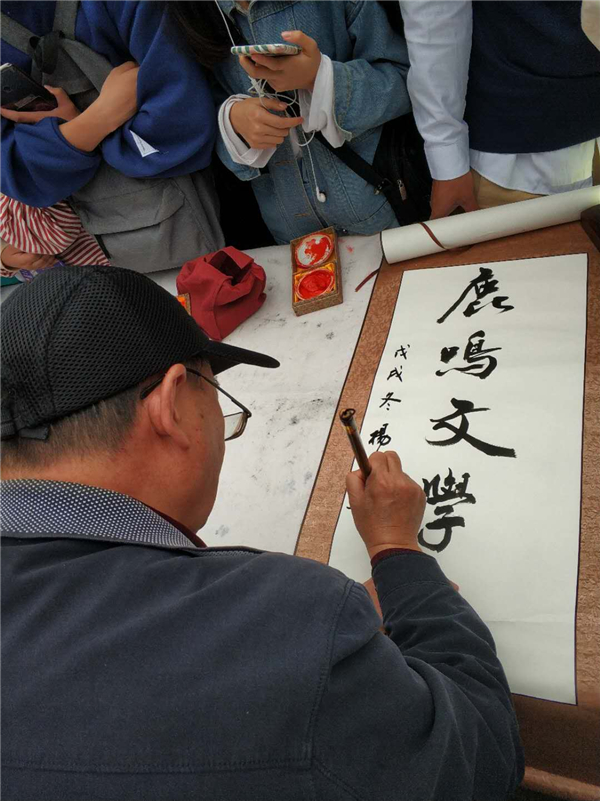 鹿鳴文學
戊戌冬楊